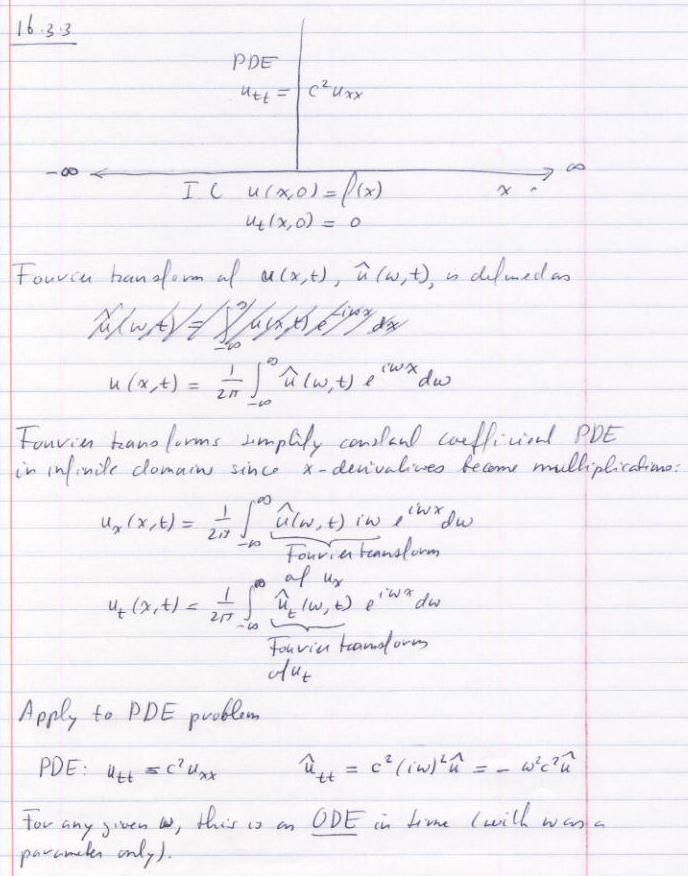 16.3.3
PDE
u_tt = c²u_xx
-∞ ∞
IC u(x,0) = f(x) x
u_t(x,0) = 0
Fourier transform of u(x,t), û(w,t), is defined as
û(w,t) = ∫_{-∞}^{∞} u(x,t) e^{-iwx} dx
u(x,t) = 1/2π ∫_{-∞}^{∞} û(w,t) e^{iwx} dw
Fourier transforms simplify constant coefficient PDE
in infinite domains since x-derivatives become multiplications:
u_x(x,t) = 1/2π ∫_{-∞}^{∞} û(w,t) iw e^{iwx} dw
Fourier transform
of u_x
u_t(x,t) = 1/2π ∫_{-∞}^{∞} û_t(w,t) e^{iwx} dw
Fourier transform
of u_t
Apply to PDE problem
PDE: u_tt = c²u_xx û_tt = c²(iw)²û = - w²c²û
For any given w, this is an ODE in time (with w as a
parameter only).